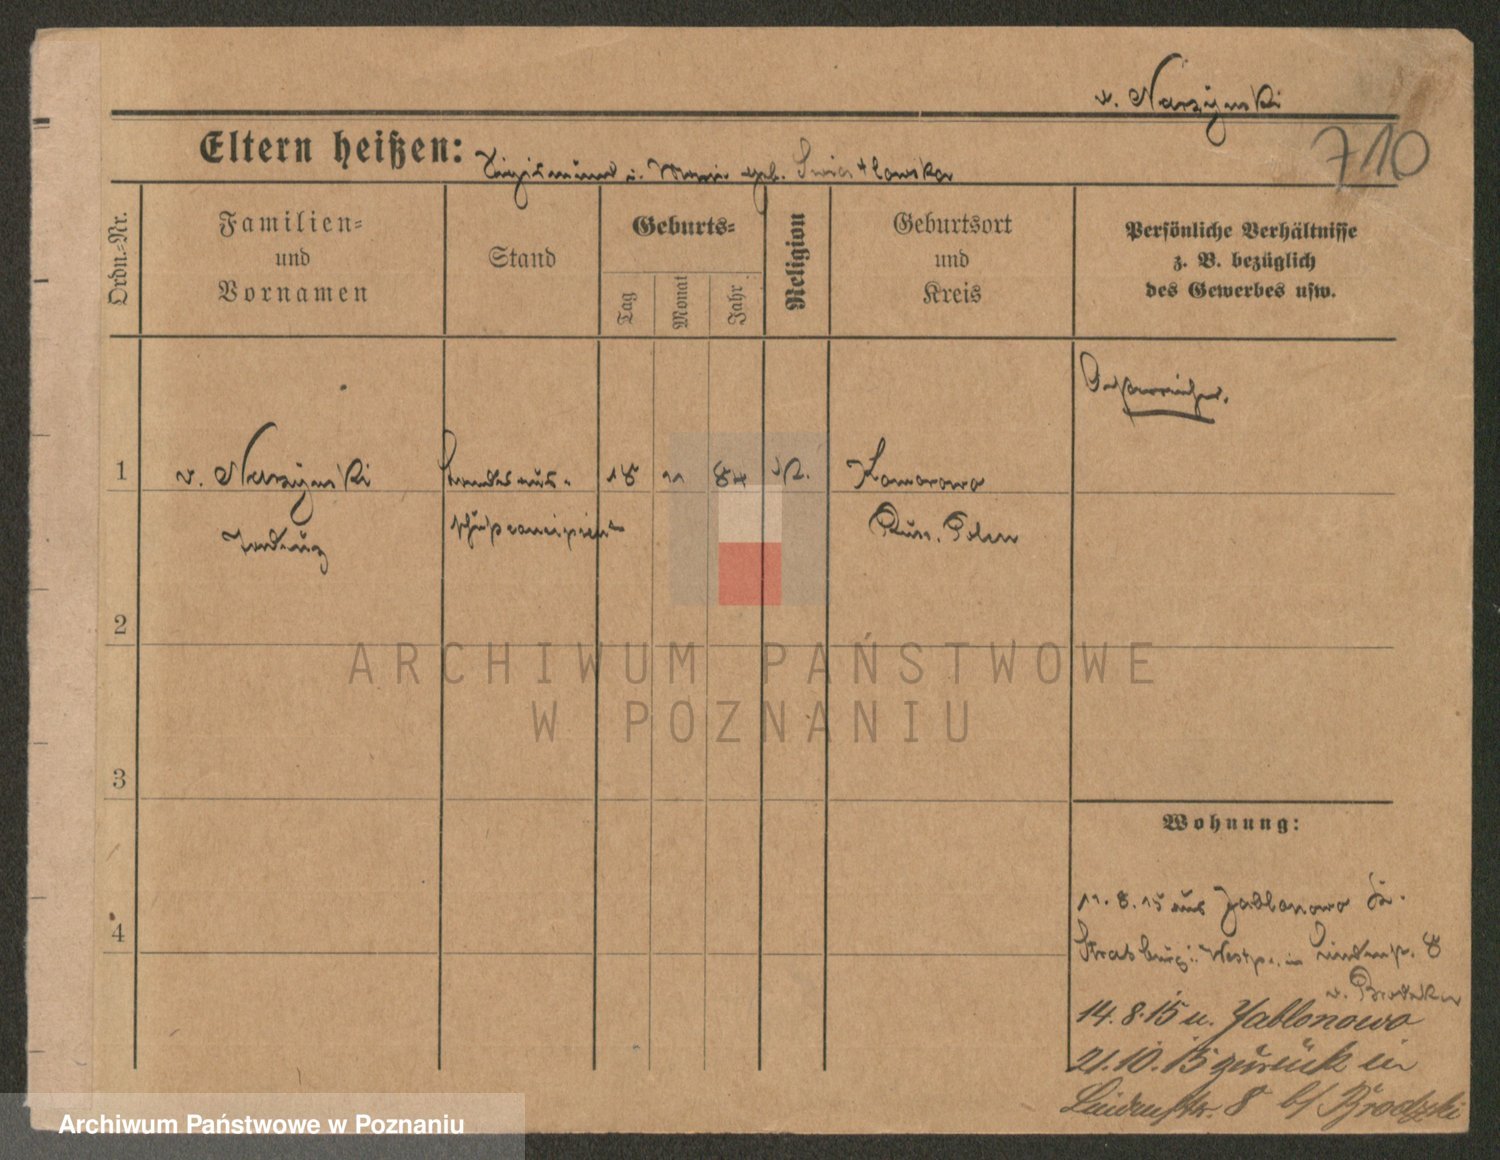 v. Narzynski
710
Eltern heißen: Sigismund u. Marie geb. Swiatlowska
Ordn.-Nr.
Familien-
und
Vornamen
Stand
Geburts-
Tag
Monat
Jahr
Religion
Geburtsort
und
Kreis
Persönliche Verhältnisse
z. B. bezüglich
des Gewerbes usw.
Österreicher.
1
v. Narzynski
18
11
84
K.
Komorowo
Russ. Polen
2
ARCHIWUM PAŃSTWOWE
W POZNANIU
3
Wohnung:
4
11.8.15 aus Jablonowo Kr.
Strasburg i. Westpr. in Lindenstr. 8
14.8.15 n. Jablonowo
21.10.15 zurück in
Lindenstr. 8 b/ Brodzki
Archiwum Państwowe w Poznaniu